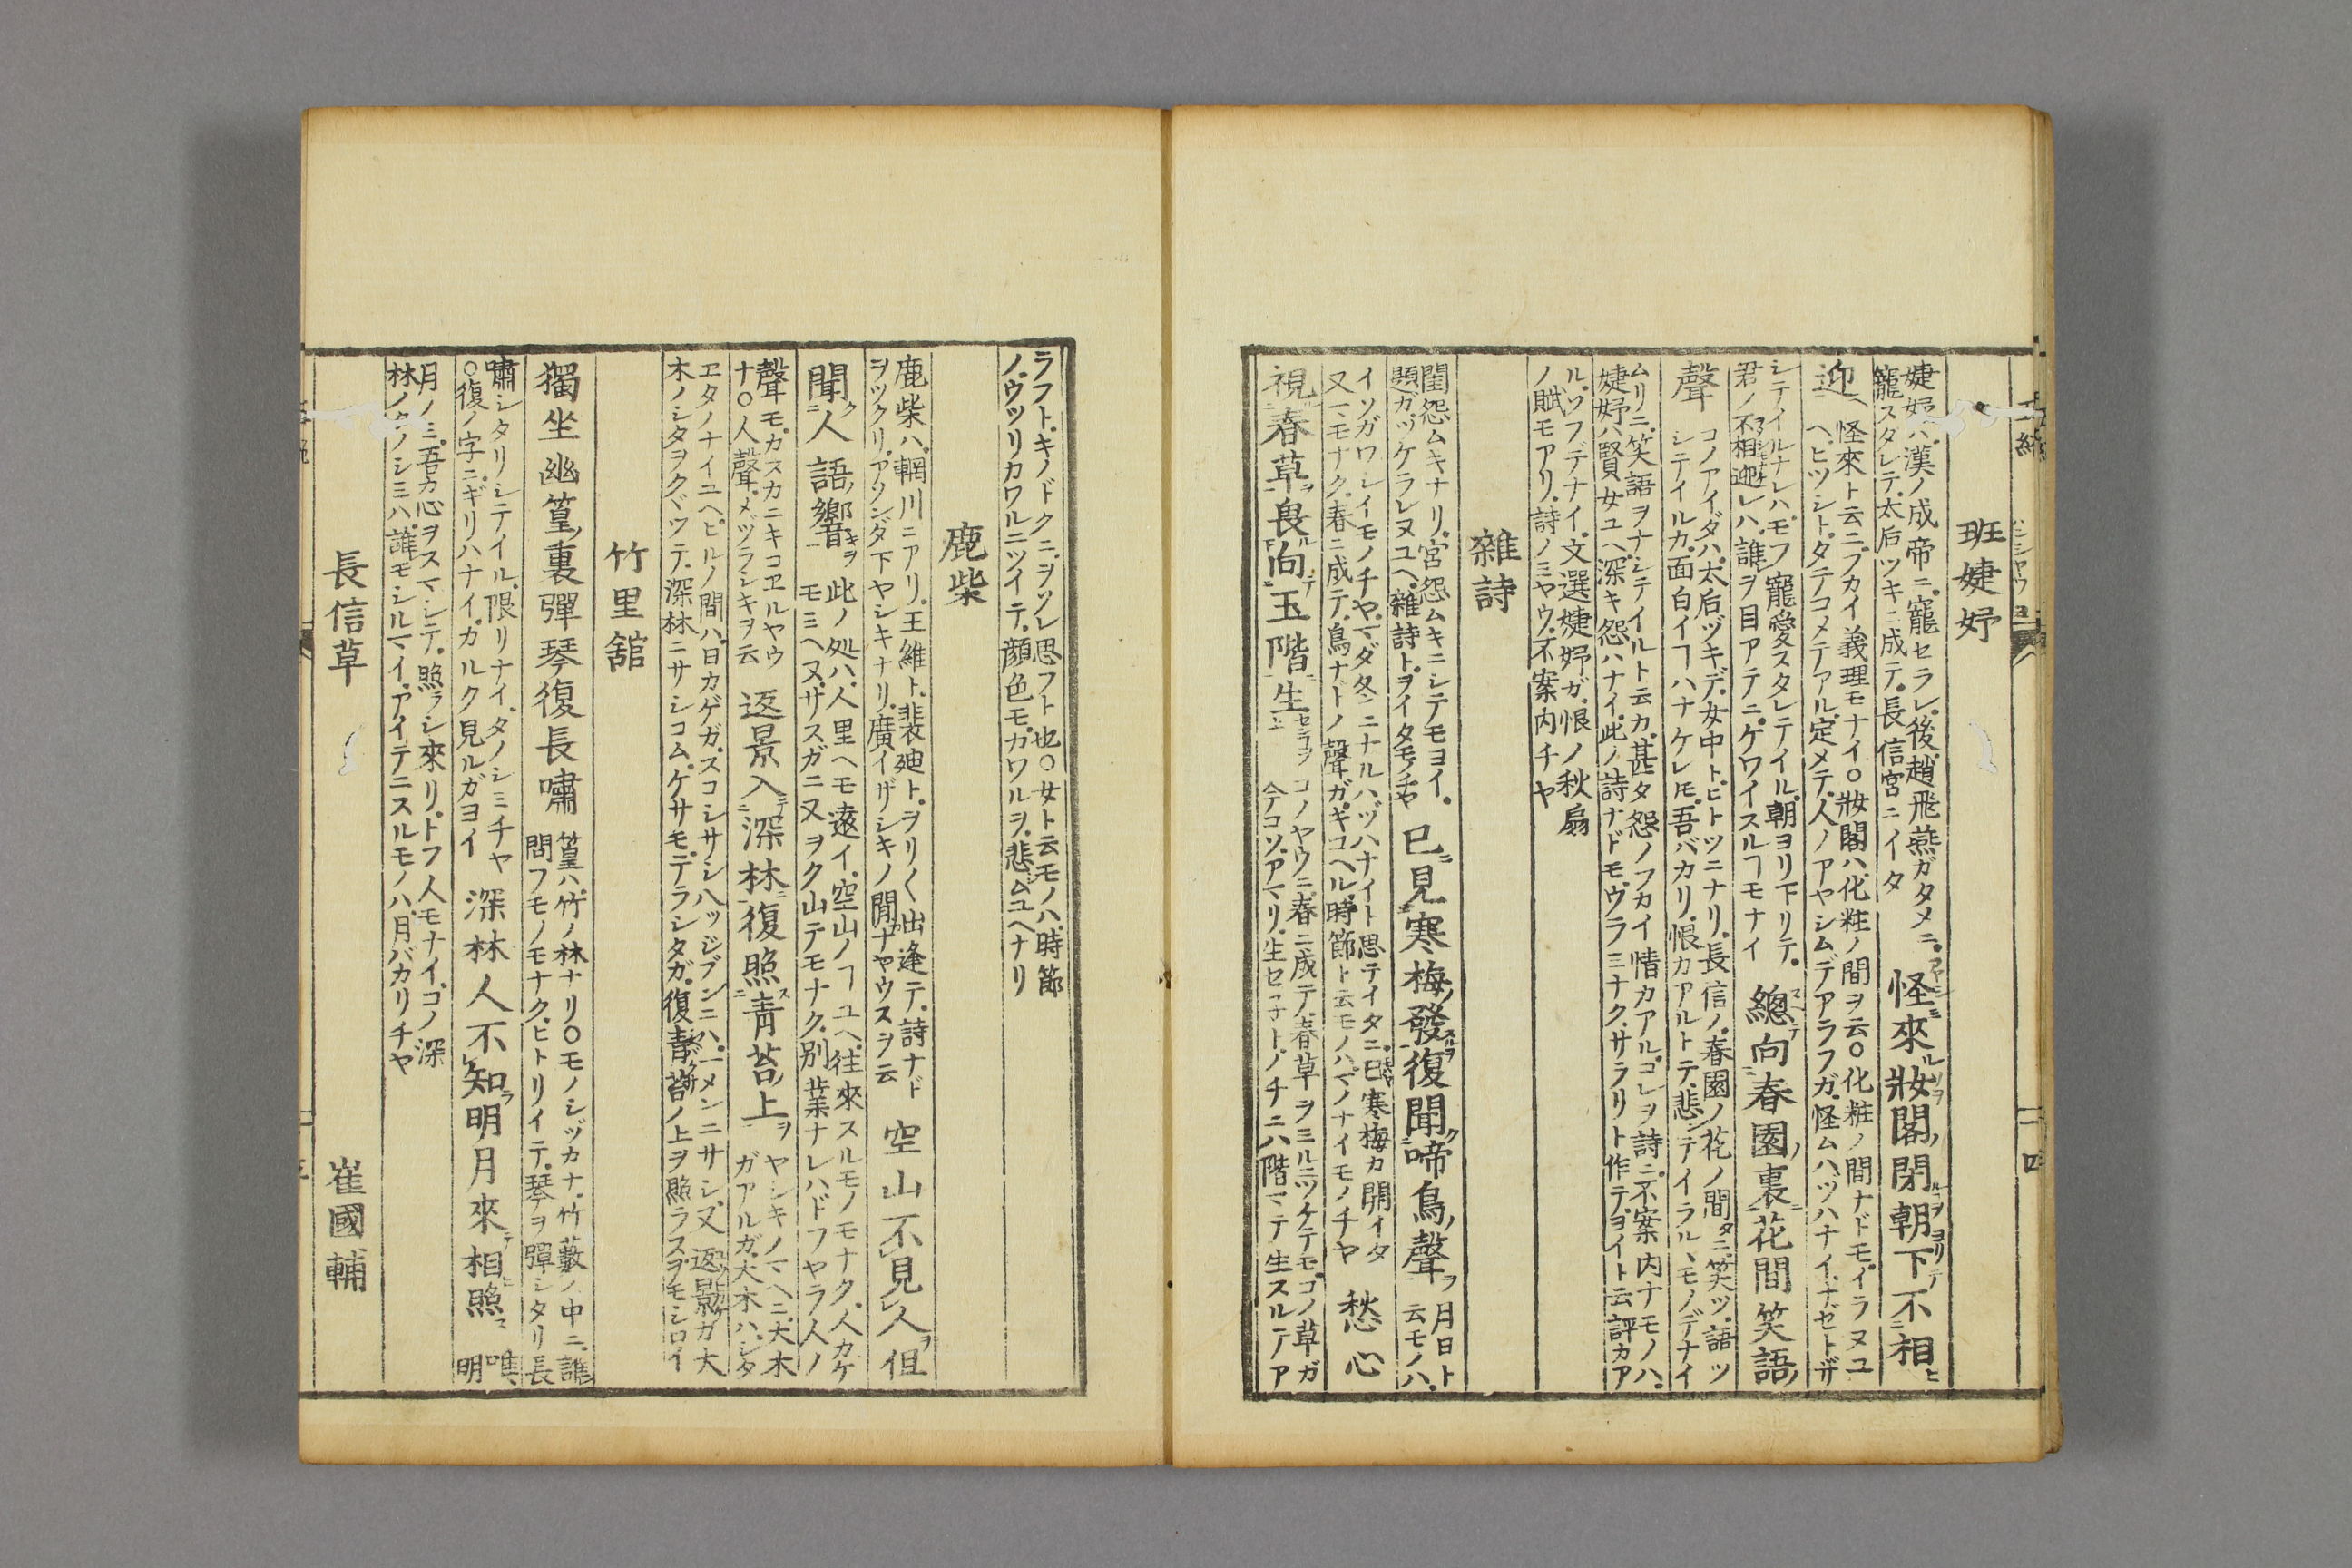 班婕妤
婕妤ハ、漢ノ成帝ニ、寵セラレ、後、趙飛燕ガタメニ、
寵スタレテ、太后ツキニ成テ、長信宮ニイタ
怪來妝閣閉朝下不相
迎
怪來ト云ニ、フカイ義理モナイ○妝閣ハ、化粧ノ間ヲ云○化粧ノ間ナドモ、イラヌユ
ヘ、ヒツシト、タテコメテアル、定メテ、人ノアヤシムデアラフガ、怪ムハヅハナイ、ナゼトザ
シテイルナレハ、モフ寵愛スタレテイル、朝ヨリ下リテ、
君ノ不相迎レハ、誰ヲ目アテニ、ゲワイスルヿモナイ
總向春園裏花間笑語
聲
コノアイダハ、太后ヅキデ、女中ト、ヒトツニナリ、長信ノ、春園ノ花ノ間タニ、笑ツ、語ツ
シテイルカ、面白イヿハナケレ𪜈、吾バカリ、恨カアルトテ、悲ンテイラルヽモノデナイ
ムリニ、笑語ヲナシテイルト云カ、甚タ怨ノフカイ情カアル、コレヲ詩ニ、不案内ナモノハ、
婕妤ハ賢女ユヘ、深キ怨ハナイ、此ノ詩ナドモ、ウラミナク、サラリト作テ、ヨイト云評カア
ル、ソフデナイ、文選婕妤ガ、恨ノ秋扇
ノ賦モアリ、詩ノミヤウ、不案内チヤ
雜詩
閨怨ムキナリ、宮怨ムキニシテモヨイ、
題ガ、ツケラレヌユヘ、雜詩ト、ヲイタモノチヤ
已見寒梅發復聞啼鳥聲
月日ト
云モノハ、
イソガワシイモノチヤ、マダ冬ニナルハヅハナイト思テイタニ、已寒梅カ開イタ
又マモナク、春ニ成テ、鳥ナトノ聲ガ、キコヘル、時節ト云モノハ、マノナイモノチヤ
愁心
視春草畏向玉階生
コノヤウニ、春ニ成テ、春草ヲミルニツケテモ、コノ草ガ
今コソ、アマリ、生セネト、ノチニハ階マテ生スルテア
ラフト、キノドクニ、ヲソレ思フト也○女ト云モノハ、時節
ノ、ウツリカワルニツイテ、顔色モ、カワルヲ、悲ムユヘナリ
鹿柴
鹿柴ハ、輞川ニアリ、王維ト、裴廸ト、ヲリ〱出逢テ、詩ナド
ヲツクリ、アソンダ下ヤシキナリ、廣イザシキノ閒ナヤウスヲ云
空山不見人但
聞人語響
此ノ処ハ、人里ヘモ遠イ、空山ノヿユヘ、往來スルモノモナク、人カケ
モミヘヌ、ザスガニ又ヲク山テモナク、別業ナレハ、ドフヤラ人ノ
聲モ、カスカニキコヱルヤウ
ナ○人聲、メヅラシキヲ云
返景入深林復照青苔上
ヤシキノマヘニ、大木
ガアルガ、大木ハ、シタ
ヱタノナイユヘ、ヒルノ間ハ、日カゲガ、スコシサシ、八ツジブンニハ、一メンニサシ、又返景ガ大
木ノシタヲクヾツテ、深林ニサシコム、ケサモ、テラシタガ、復青苔ノ上ヲ照ラス、ヲモシロイ
竹里舘
獨坐幽篁裏彈琴復長嘯
篁ハ、竹ノ林ナリ○モノシヅカナ、竹藪ノ中ニ、誰
問フモノモナク、ヒトリイテ、琴ヲ彈シタリ長
嘯シタリシテイル、限リナイ、タノシミチヤ
○復ノ字ニ、ギリハナイ、カルク見ルガヨイ
深林人不知明月來相照
唯、
明
月ノミ、吾カ心ヲスマシテ、照ラシ來リ、トフ人モナイ、コノ深
林ノタノシミハ、誰モシルマイ、アイテニスルモノハ、月バカリチヤ
長信草　崔國輔